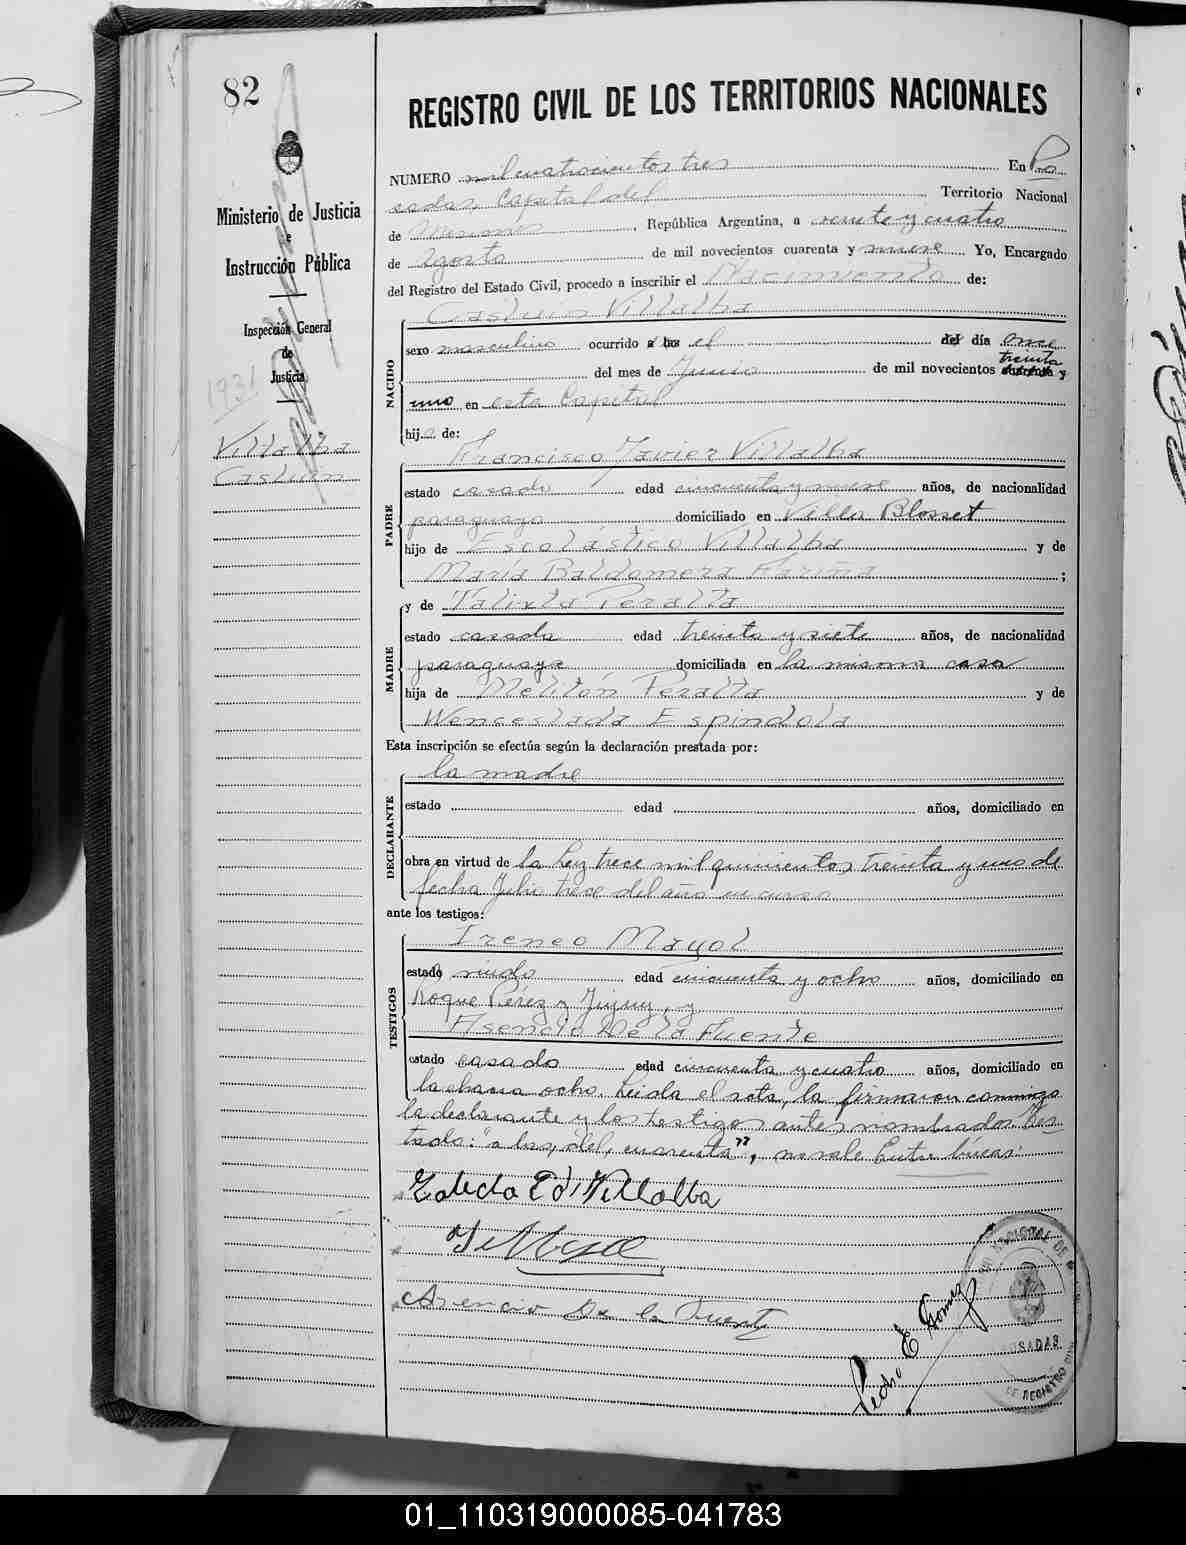 82
Ministerio de Justicia
e
Instrucción Pública
Inspección General
de
Justicia
1931
Villalba
Casiano
REGISTRO CIVIL DE LOS TERRITORIOS NACIONALES
NUMERO mil cuatrocientos tres En Po
sadas, Capital del Territorio Nacional
de Misiones, República Argentina, a veinte y cuatro
de Agosto de mil novecientos cuarenta y nueve Yo, Encargado
del Registro del Estado Civil, procedo a inscribir el Nacimiento de:
Villalba
NACIDO
sexo masculino ocurrido a las el del día once
del mes de Junio de mil novecientos treinta cuarenta y
uno en esta Capital
hijo de:
Francisco Javier Villalba
PADRE
estado casado edad cincuenta y nueve años, de nacionalidad
paraguaya domiciliado en Villa Blosset
hijo de Escolástico Villalba y de
María Baldomera Fariña ;
y de Talixta Peralta
MADRE
estado casada edad treinta y siete años, de nacionalidad
paraguaya domiciliada en la misma casa
hija de Melitón Peralta y de
Wenceslada Espindola
Esta inscripción se efectúa según la declaración prestada por:
la madre
DECLARANTE
estado edad años, domiciliado en
obra en virtud de la Ley trece mil quinientos treinta y uno de
fecha Julio trece del año en curso
ante los testigos:
Ireneo Mayol
TESTIGOS
estado viudo edad cincuenta y ocho años, domiciliado en
Roque Pérez y Jujuy, y
Asencio De la Fuente
estado casado edad cincuenta y cuatro años, domiciliado en
la chacra ocho. Leida el acta, la firmaron conmigo
la declarante y los testigos antes nombrados. Tes
tado: "a las, del, cuarenta", no vale. Entre líneas:
Villalba
Asencio De la Fuente
Pedro E Gomez
POSADAS
01_110319000085-041783